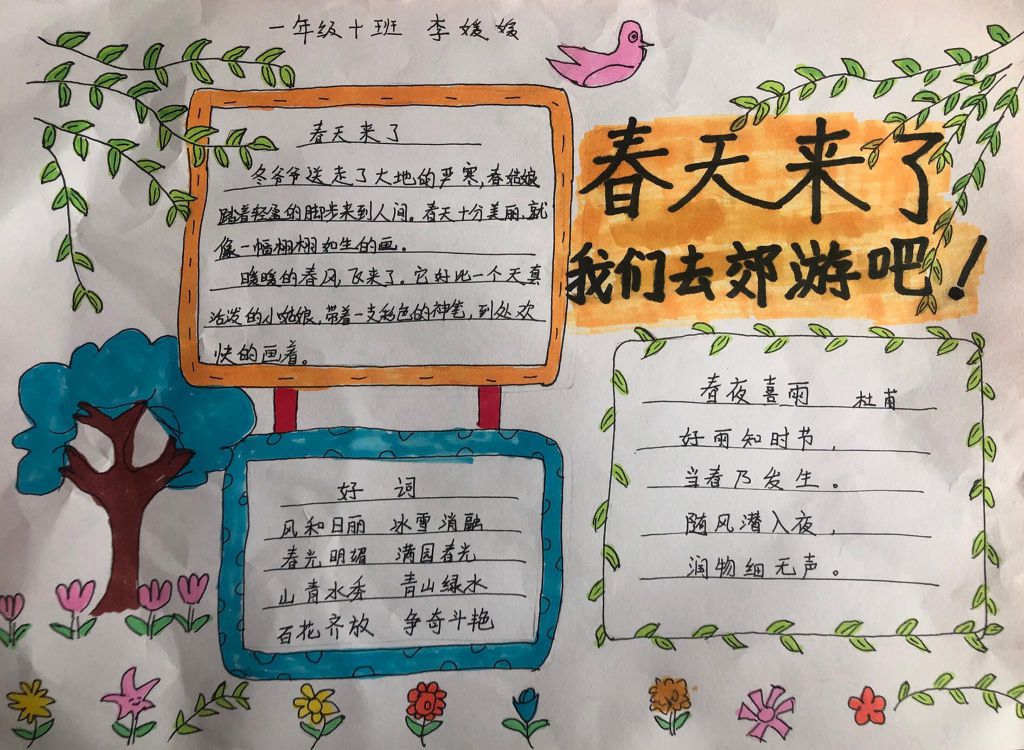 一年级十班 李媛媛
春天来了
冬爷爷送走了大地的严寒,春姑娘
踏着轻盈的脚步来到人间。春天十分美丽,就
像一幅栩栩如生的画。
暖暖的春风飞来了,它好比一个天真
活泼的小姑娘,带着一支彩色的神笔,到处欢
快的画着。
春天来了
我们去郊游吧!
好 词
风和日丽 冰雪消融
春光明媚 满园春光
山青水秀 青山绿水
百花齐放 争奇斗艳
春夜喜雨 杜甫
好雨知时节,
当春乃发生。
随风潜入夜,
润物细无声。